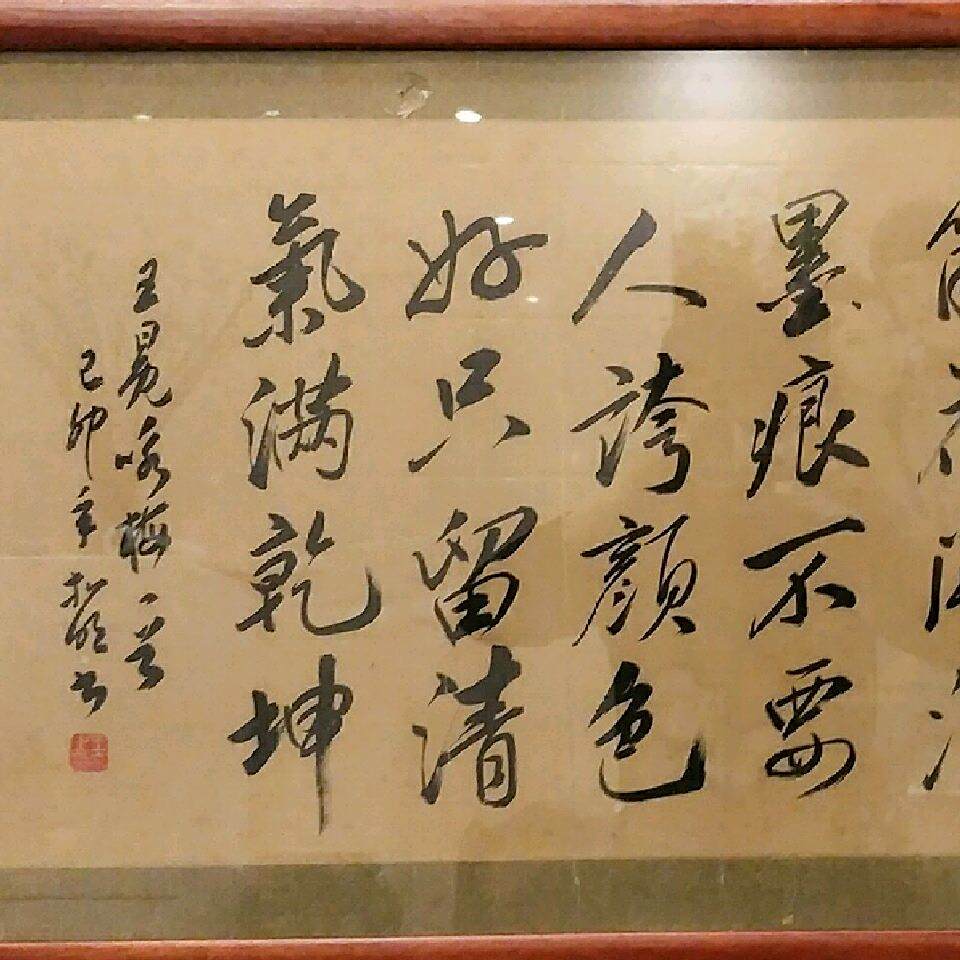 墨痕不要
人誇顏色
好只留清
氣滿乾坤
王冕咏梅一首
己卯年书